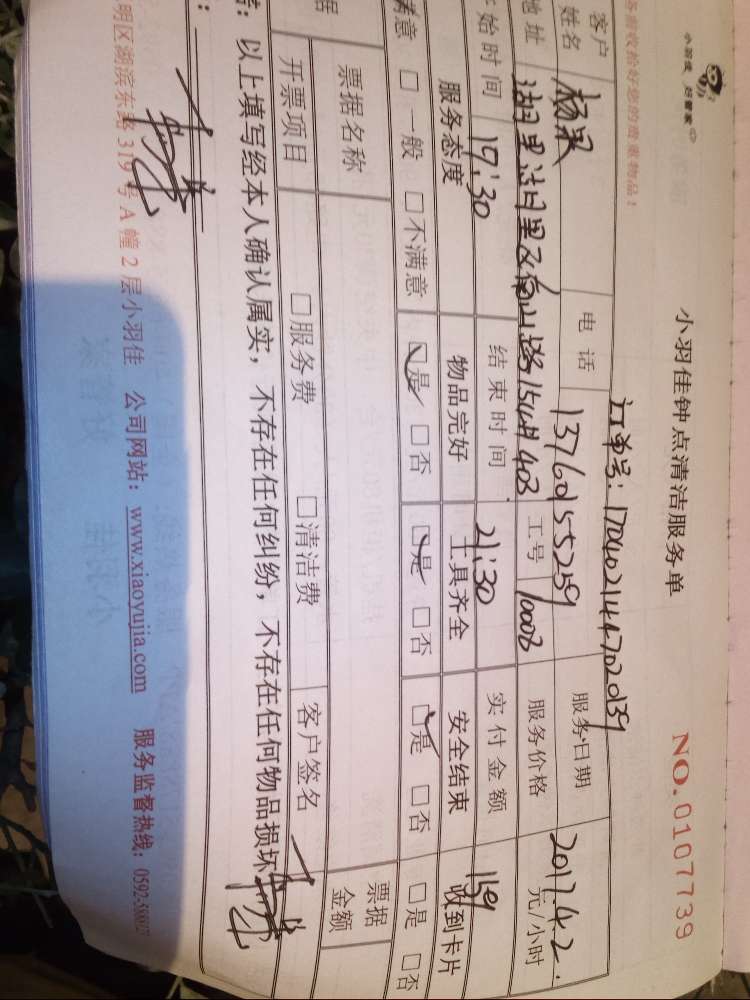 小羽佳 好管家
小羽佳钟点清洁服务单
NO.0107739
收拾好您的贵重物品!
订单号:
客户姓名 杨果 电话 13760155259 服务日期 2017.4.2.
地址 工号 10003 服务价格 元/小时
始时间 17:30 结束时间 21:30 实付金额 159
服务态度 物品完好 工具齐全 安全结束 收到卡片
满意 □一般 □不满意 □是 □否 □是 □否 □是 □否 □是 □否
据 票据名称 票据金额
开票项目 □服务费 □清洁费 客户签名
以上填写经本人确认属实,不存在任何纠纷,不存在任何物品损坏
明区湖滨东路319号A幢2层小羽佳 公司网站:www.xiaoyujia.com 服务监督热线: